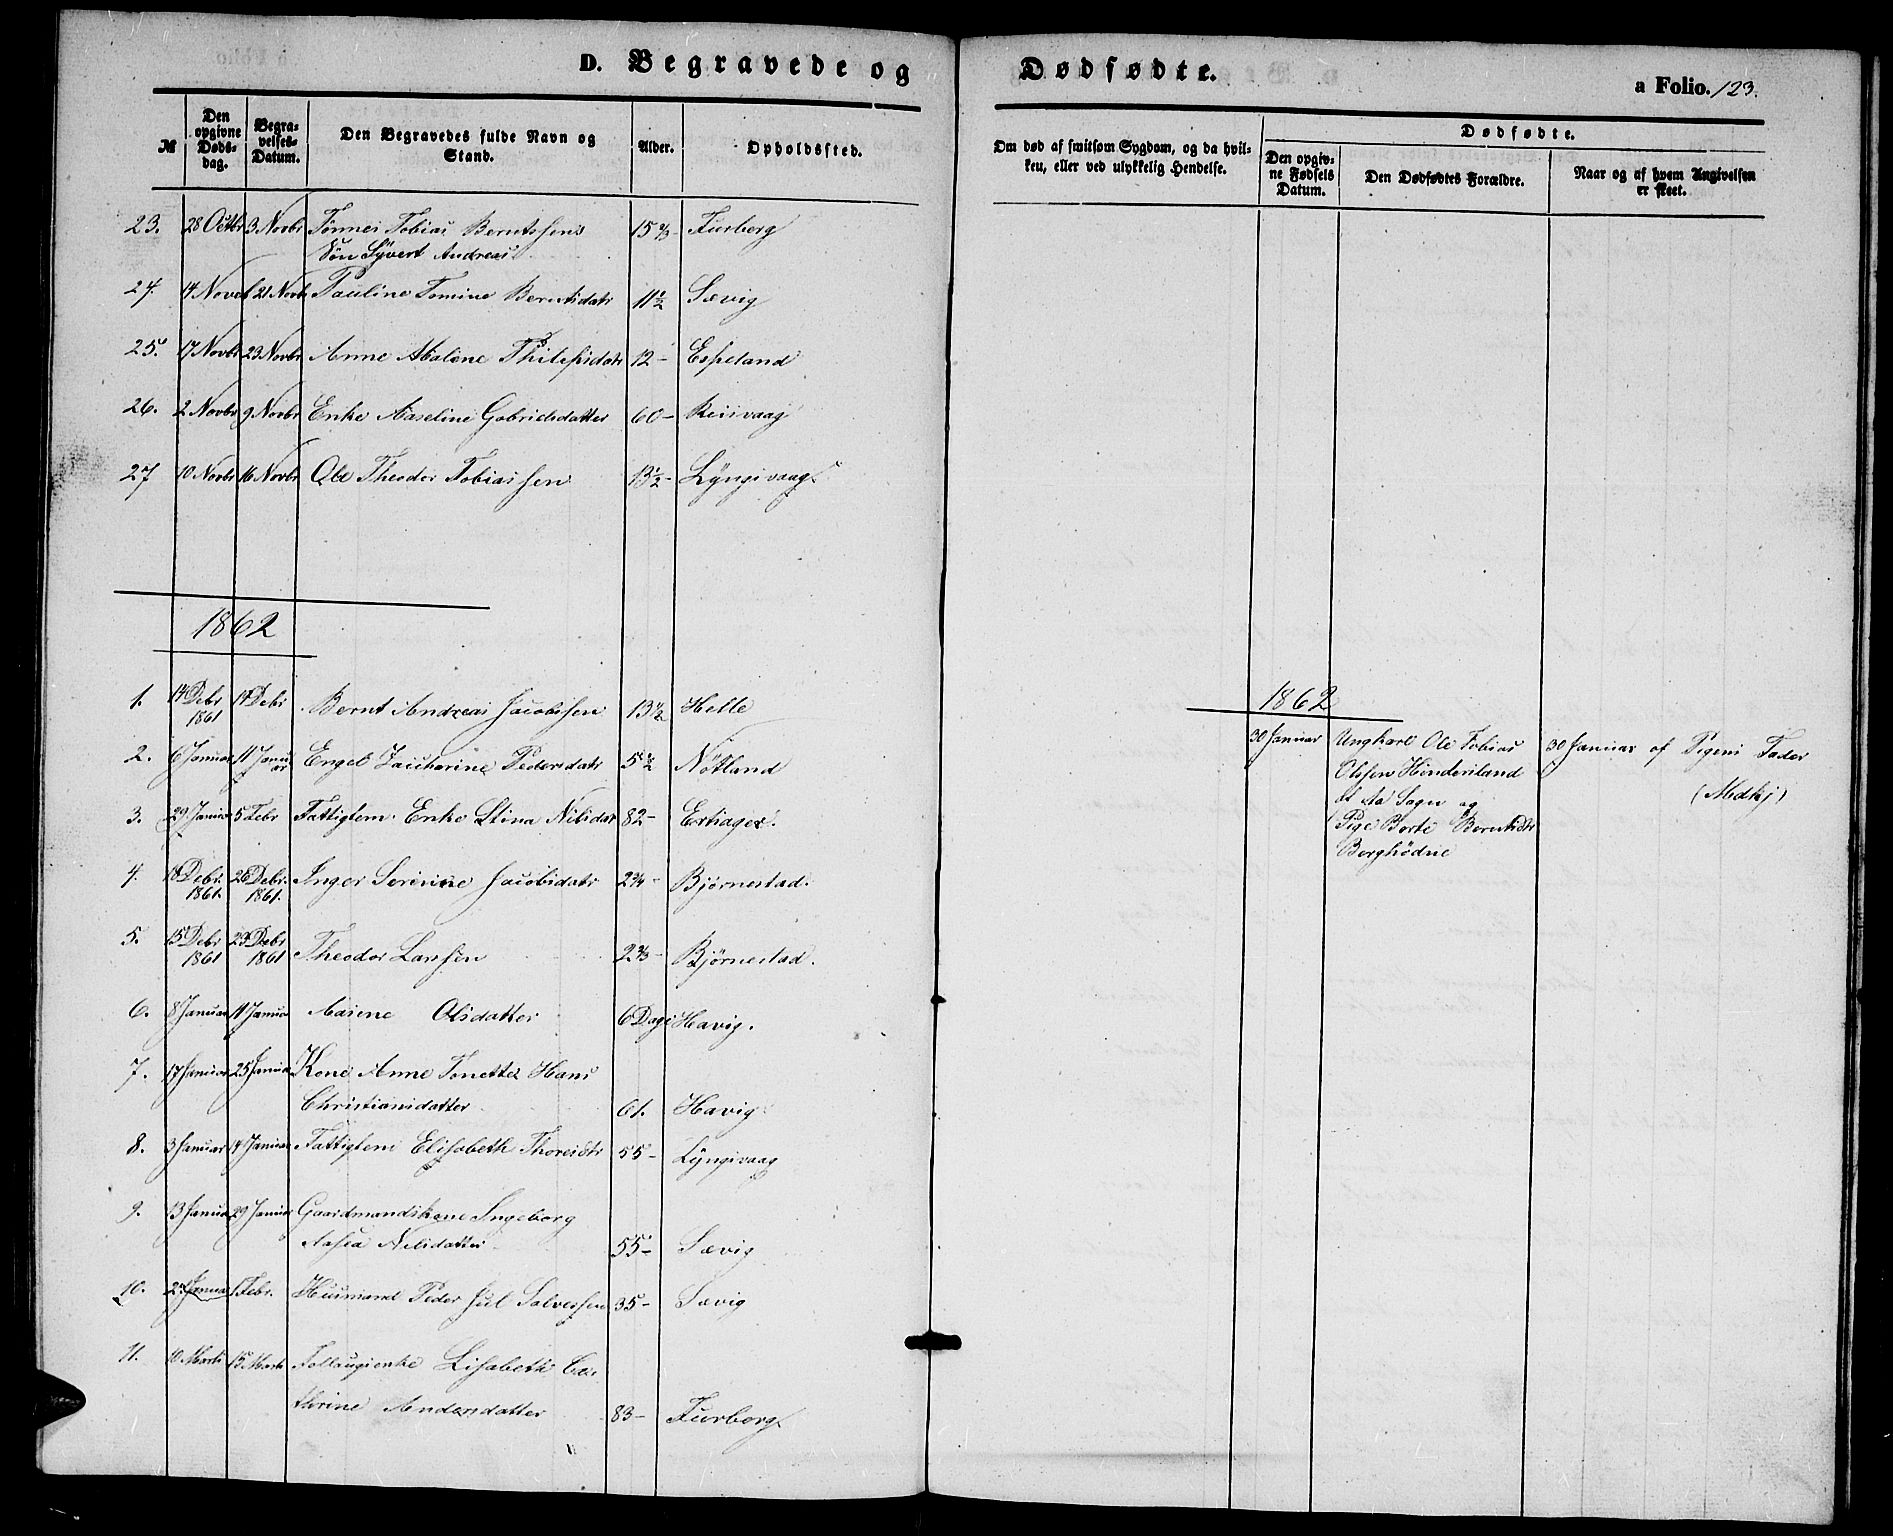 D. Begravede og Dødfødte.
a Folio. 123.
№
Den opgivne Døds-dag.
Begra-velses-Datum.
Den Begravedes fulde Navn og Stand.
Alder.
Opholdssted.
Om død af smitsom Sygdom, og da hvil-ken, eller ved ulykkelig Hendelse.
Dødfødte.
Den opgiv-ne Fødsels Datum.
Den Dødfødtes Forældre.
Naar og af hvem Angivelsen er skeet.
23. 28 Octbr 3 Novbr Tønnes Tobias Berntssens 15 Furberg
Søn Syvert Andreas
24. 14 Novb 21 Novb Pauline Tomine Berntsdatr 11½ Sævig
25. 17 Novbr 23 Novbr Anne Abalone 12 - Espeland
26. 2 Novbr 9 Novbr Enke Aaseline Gabrielsdatter 60 -
27 10 Novbr 16 Novbr Ole Theodor Tobiassen 13½ - Lyngsvaag
1862
1. 14 Debr 1861 17 Debr Bernt Andreas Jacobssen 13½ Helle
2. 6 Januar 11 Januar Engel Zacharine Pedersdatr 5½ Nøtland
3. 29 Januar 5 Febr Fattiglem. Enke Stina Nilsdatr 82 -
4. 18 Debr. 1861. 26 Debr. 1861. Inger Serine Jacobsdatr 2¾ - Bjørnestad.
5. 15 Debr 1861 23 Debr 1861 Theodor Larssen 2⅔ - Bjørnestad.
6. 8 Januar 11 Januar Olsdatter 6 Dage Havig.
7. 17 Januar 25 Januar Kone Anne Tonette Hans
Christiansdatter 61. Havig
8. 3 Januar 14 Januar Fattiglem Elisabeth Thoresdtr 55 - Lyngsvaag
9. 13 Januar 29 Januar Gaardmandskone Ingeborg
Aasea Nilsdatter 55 - Sævig
10. Januar 1 Febr. Huusmand Peder Jul Salvessen 35 - Sævig
11. 10 Marts 15 Marts Lisabeth Ca-
thrine Andersdatter 83 - Furborg
1862
30 Januar Ungkarl Ole Tobias 30 Januar af Pigens Fader
Olssen Hinderiland
Aa Sogn og
Pige Berte Berntsdtr
Berghødne